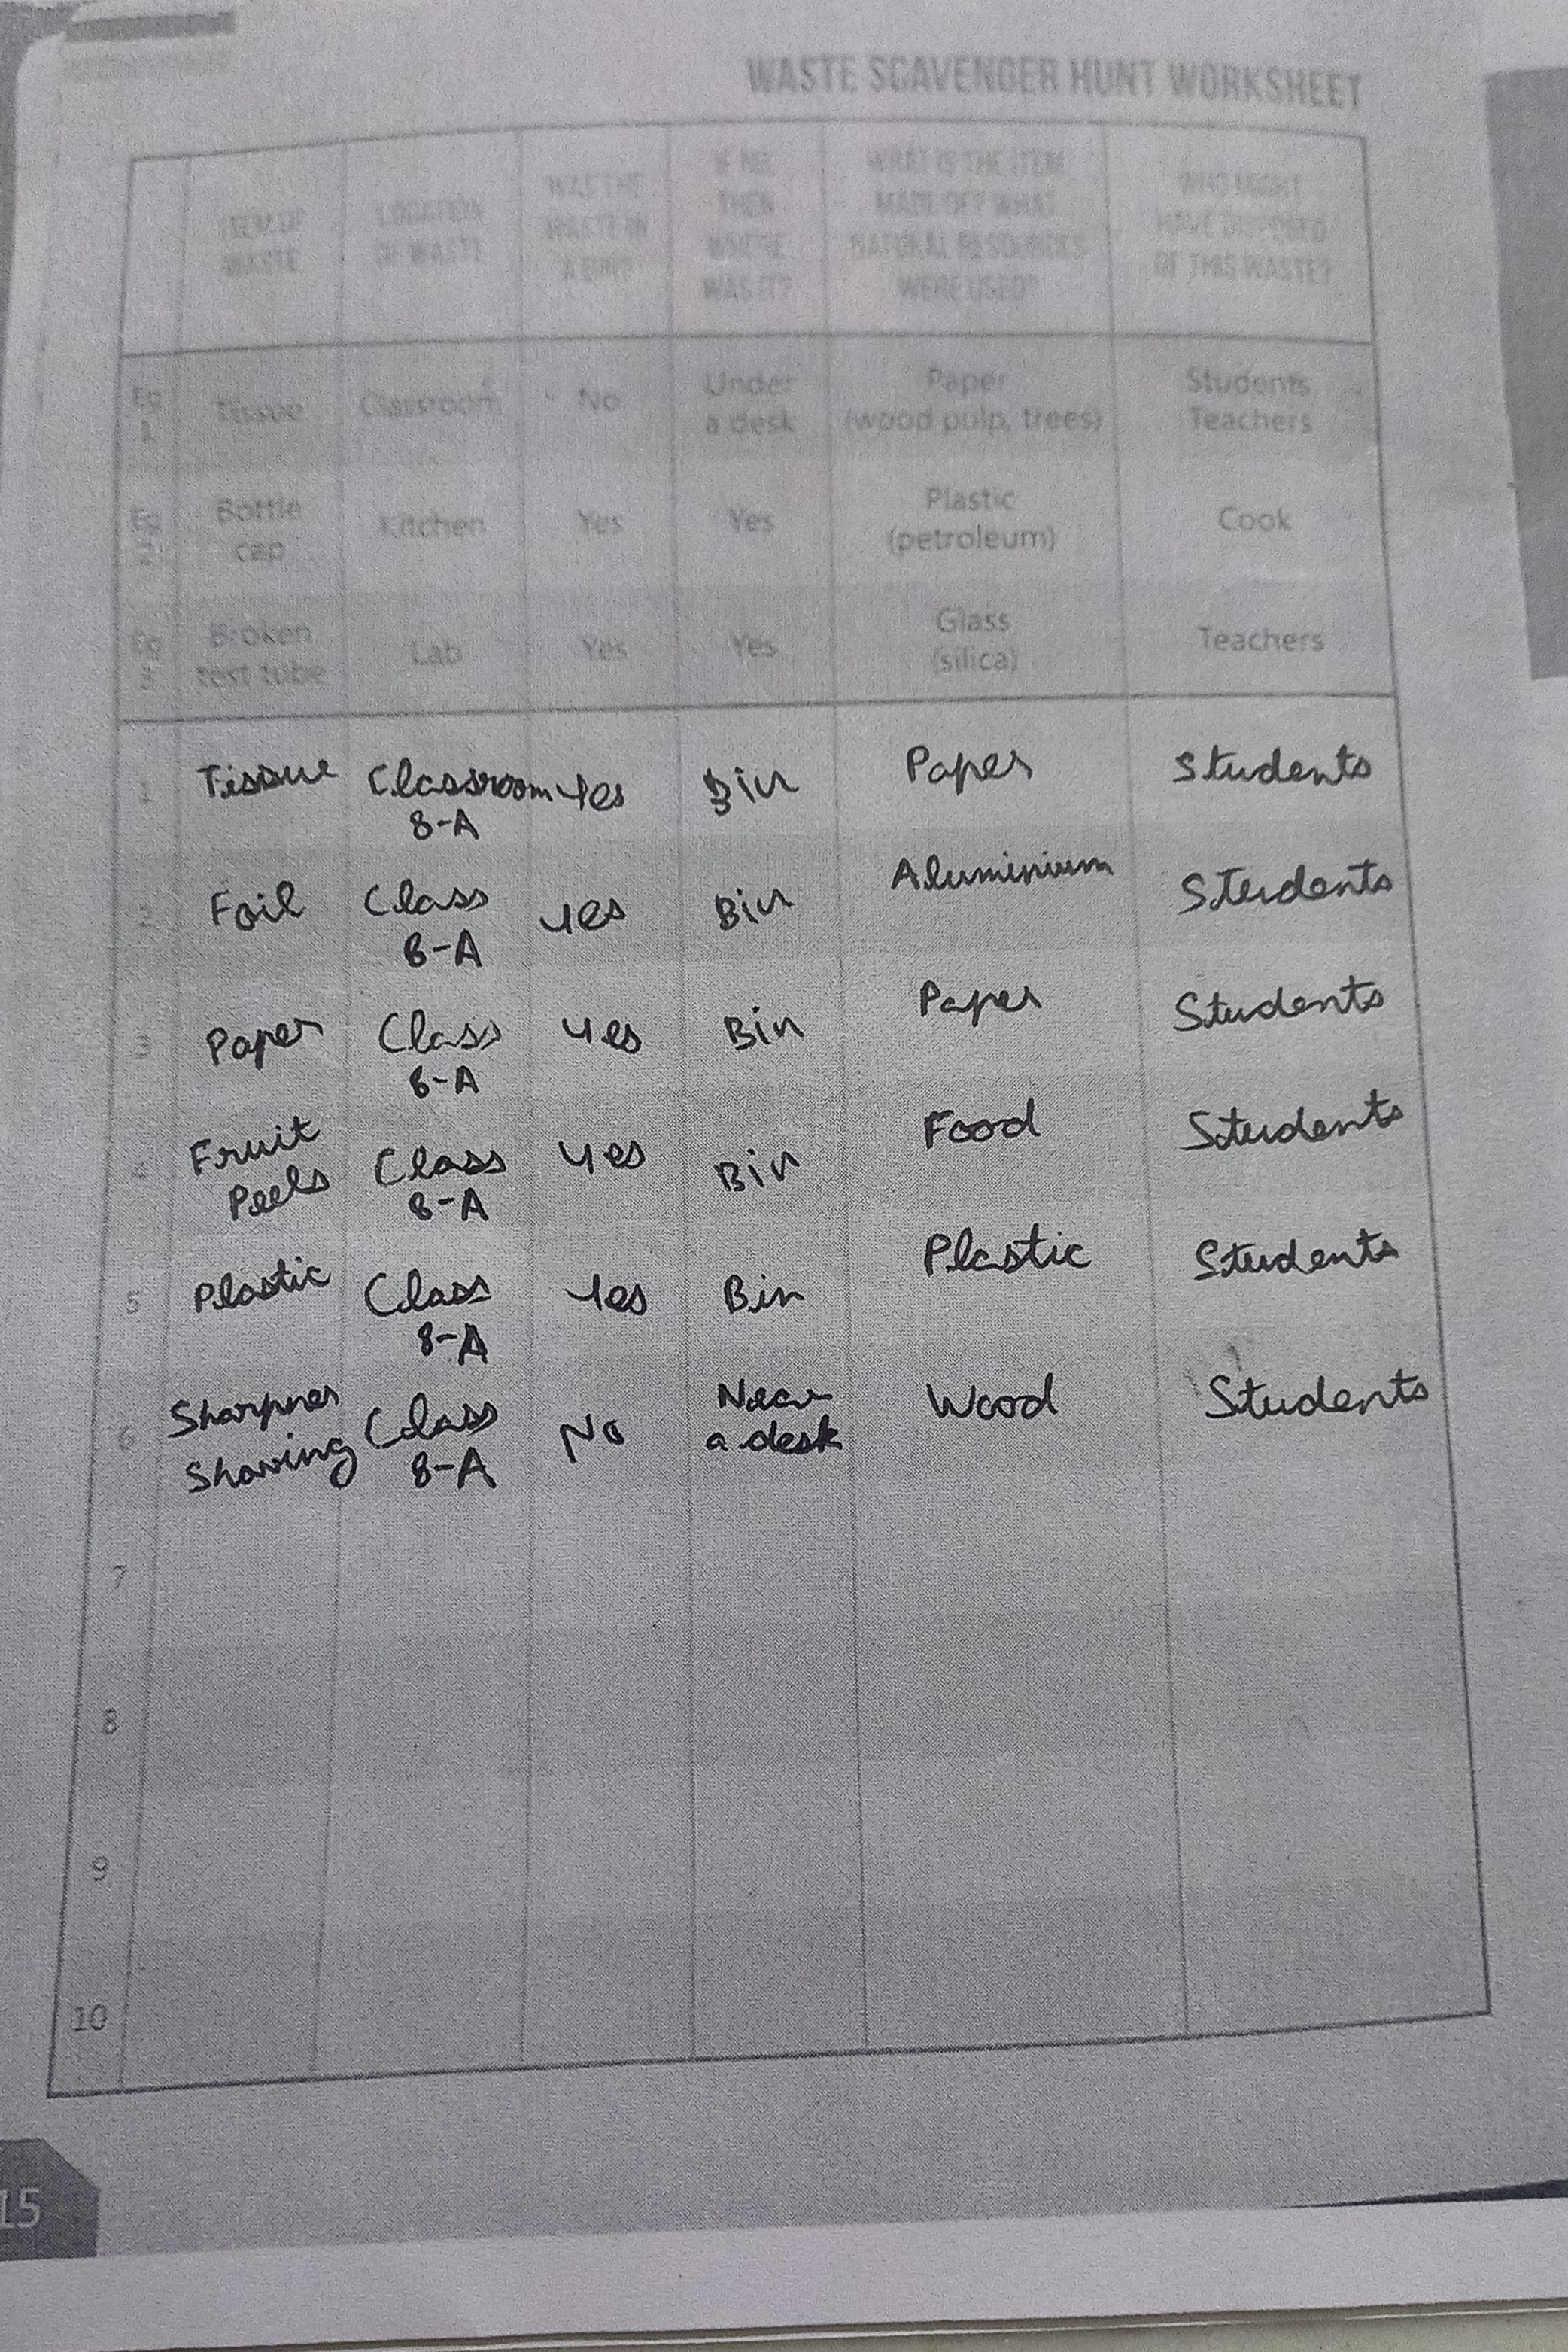 WASTE SCAVENGER HUNT WORKSHEET
ITEM OF WASTE | LOCATION OF WASTE | WAS THE WASTE IN A BIN? | IF NO, THEN WHERE WAS IT? | WHAT IS THE ITEM MADE OF? WHAT NATURAL RESOURCES WERE USED? | WHO MIGHT HAVE DISPOSED OF THIS WASTE?
Eg 1 | Tissue | Classroom | No | Under a desk | Paper (wood pulp, trees) | Students Teachers
Eg 2 | Bottle cap | Kitchen | Yes | Yes | Plastic (petroleum) | Cook
Eg 3 | Broken test tube | Lab | Yes | Yes | Glass (silica) | Teachers
1 | Tissue | Classroom 8-A | Yes | Bin | Paper | Students
2 | Foil | Class 8-A | Yes | Bin | Aluminium | Students
3 | Paper | Class 8-A | Yes | Bin | Paper | Students
4 | Fruit Peels | Class 8-A | Yes | Bin | Food | Students
5 | Plastic | Class 8-A | Yes | Bin | Plastic | Students
6 | Sharpner Shaving | Class 8-A | No | Near a desk | Wood | Students
7
8
9
10
15